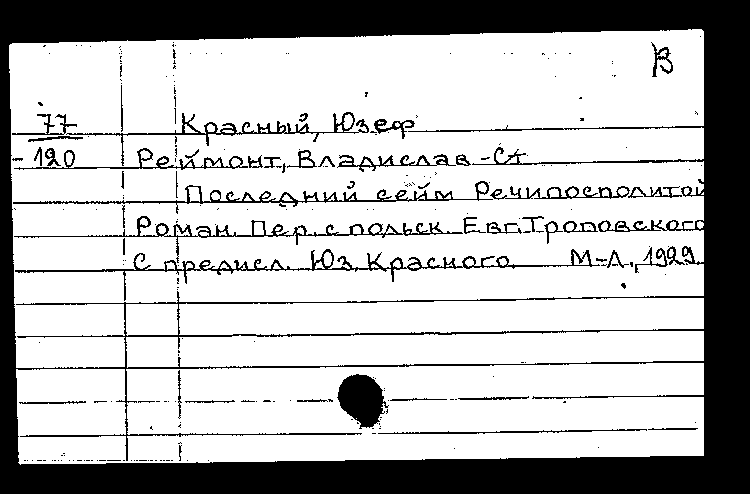 В
77 Красный, Юзеф
-120 Реймонт, Владислав -Ст
Последний сейм Речипосполитой
Роман. Пер. с польск. Евг. Троповского
С предисл. Юз. Красного. М-Л., 1929.